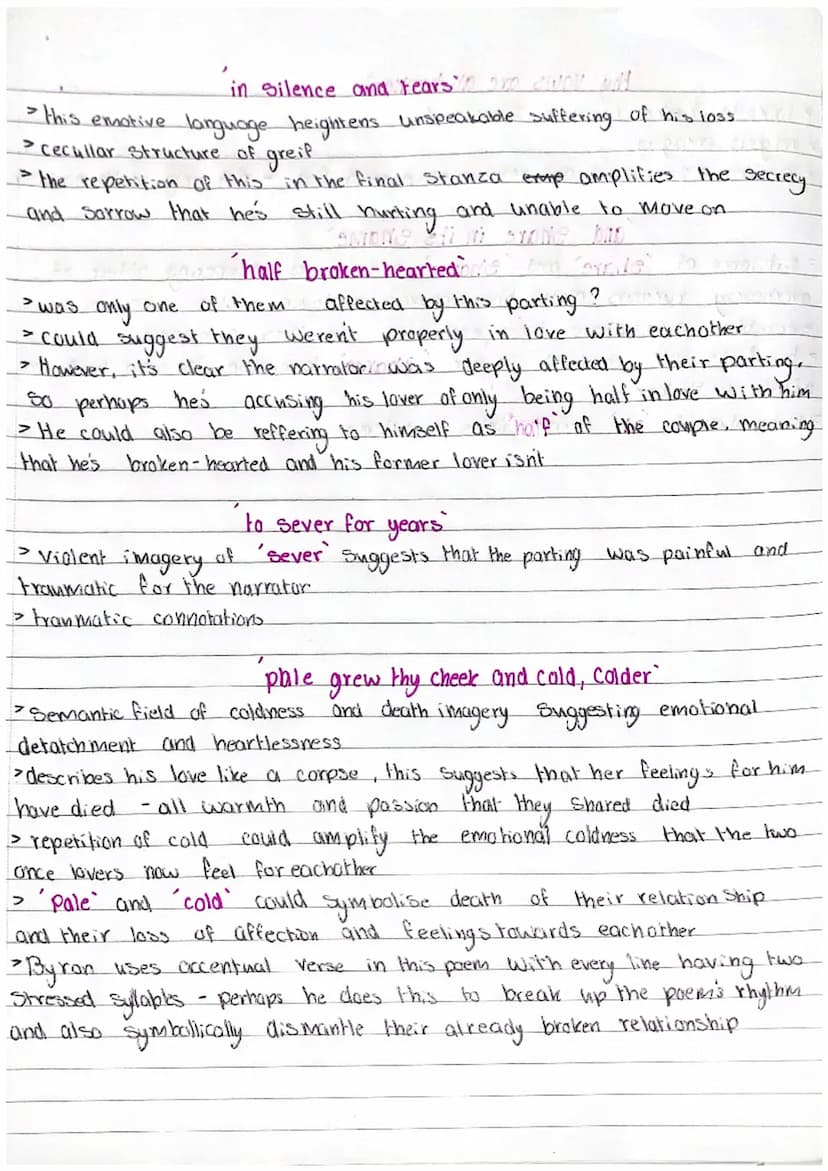 'in silence and tears'
> this emotive language heightens unspeakable suffering of his loss
> cecullar structure of greif
> the repetition of this in the final stanza amplifies the secrecy
and sorrow that he's still hurting and unable to move on
'half broken-hearted'
> was only one of them affected by this parting?
> could suggest they weren't properly in love with eachother
> However, it's clear the narrator was deeply affected by their parting,
so perhaps he's accusing his lover of only being half in love with him
> He could also be reffering to himself as 'half' of the couple, meaning
that he's broken-hearted and his former lover isn't
'to sever for years'
> Violent imagery of 'sever' suggests that the parting was painful and
traumatic for the narrator
> traumatic connotations
'pale grew thy cheek and cold, Colder'
> Semantic field of coldness and death imagery suggesting emotional
detatchment and heartlessness
> describes his love like a corpse, this suggests that her feelings for him
have died - all warmth and passion that they shared died
> repetition of cold could amplify the emotional coldness that the two
once lovers now feel for eachother
> 'Pale' and 'cold' could symbolise death of their relationship
and their loss of affection and feelings towards eachother
> Byron uses accentual verse in this poem with every line having two
stressed syllables - perhaps he does this to break up the poem's rhythm
and also symbollically dismantle their already broken relationship